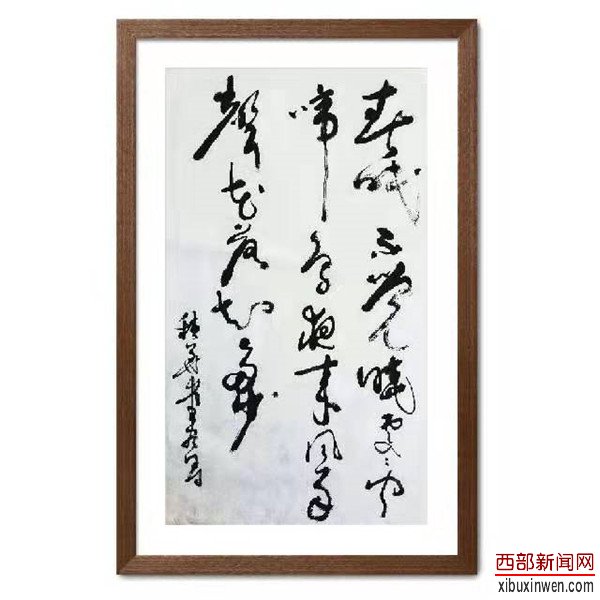 春眠不觉晓处々闻
啼鸟夜来风雨
聲花落知多少
西部新闻网
xibuxinwen.com